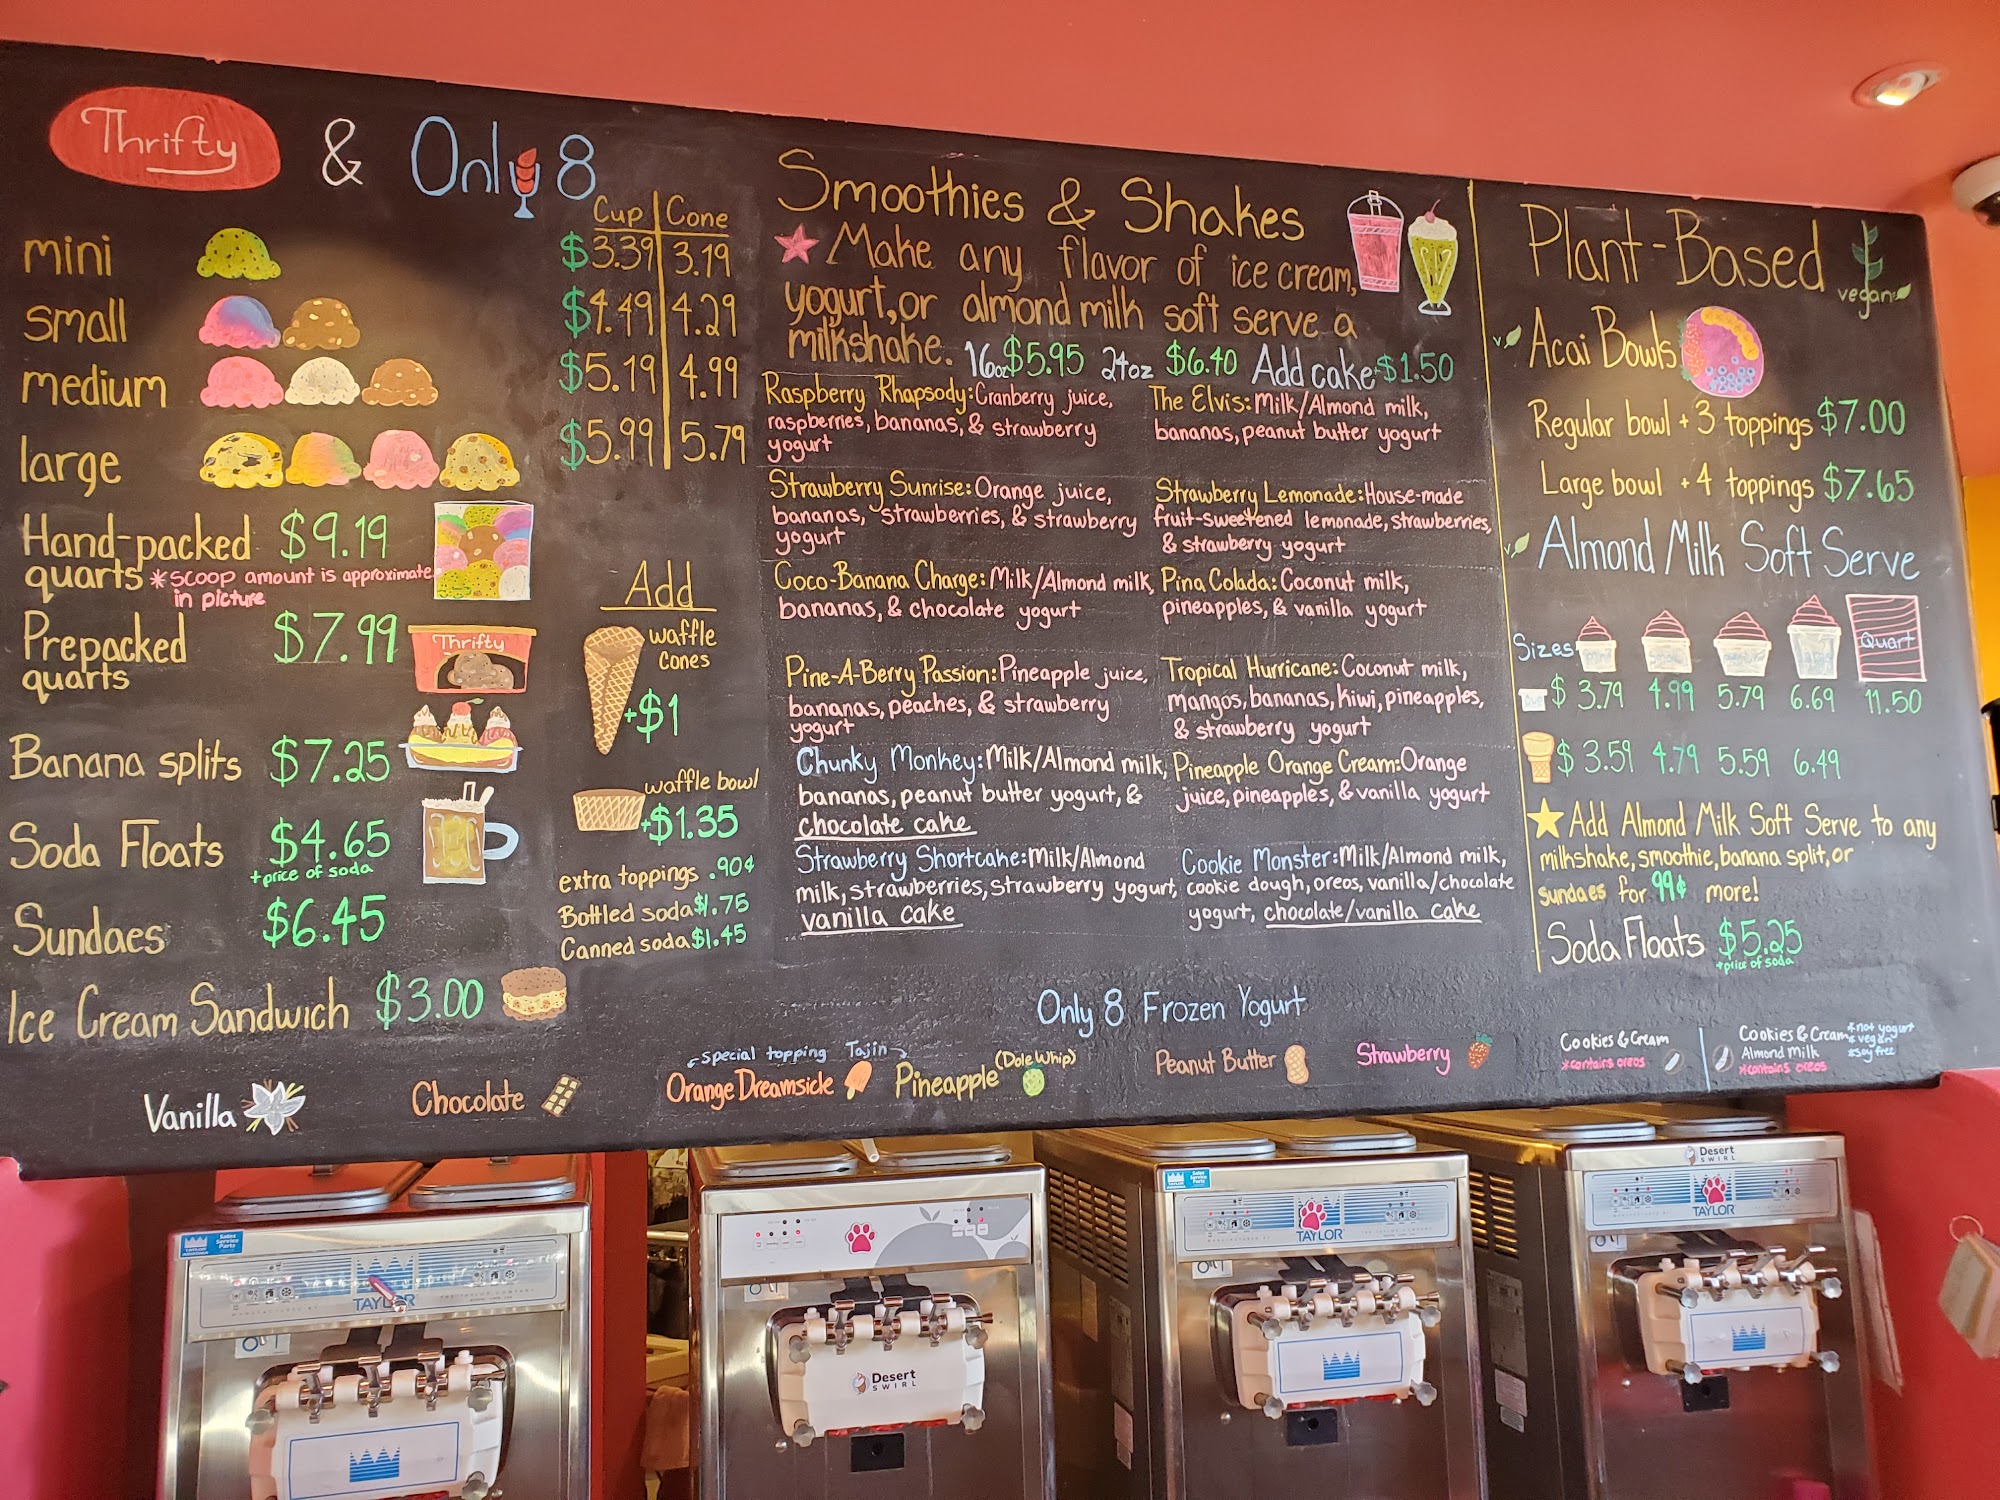 Thrifty & Only 8
Cup Cone
mini $3.39 3.19
small $4.49 4.29
medium $5.19 4.99
large $5.99 5.79
Hand-packed $9.19
quarts *scoop amount is approximate
in picture
Prepacked $7.99
quarts
Thrifty
Banana splits $7.25
Soda Floats $4.65
+price of soda
Sundaes $6.45
Ice Cream Sandwich $3.00
Add
waffle
cones
+$1
waffle bowl
+$1.35
extra toppings .90¢
Bottled soda $1.75
Canned soda $1.45
Smoothies & Shakes
Make any flavor of ice cream,
yogurt, or almond milk soft serve a
milkshake. 16oz $5.95 24oz $6.40 Add cake +$1.50
Raspberry Rhapsody: Cranberry juice,
raspberries, bananas, & strawberry
yogurt
Strawberry Sunrise: Orange juice,
bananas, strawberries, & strawberry
yogurt
Coco-Banana Charge: Milk/Almond milk,
bananas, & chocolate yogurt
Pine-A-Berry Passion: Pineapple juice,
bananas, peaches, & strawberry
yogurt
Chunky Monkey: Milk/Almond milk,
bananas, peanut butter yogurt, &
chocolate cake
Strawberry Shortcake: Milk/Almond
milk, strawberries, strawberry yogurt,
vanilla cake
The Elvis: Milk/Almond milk,
bananas, peanut butter yogurt
Strawberry Lemonade: House-made
fruit-sweetened lemonade, strawberries,
& strawberry yogurt
Pina Colada: Coconut milk,
pineapples, & vanilla yogurt
Tropical Hurricane: Coconut milk,
mangos, bananas, kiwi, pineapples,
& strawberry yogurt
Pineapple Orange Cream: Orange
juice, pineapples, & vanilla yogurt
Cookie Monster: Milk/Almond milk,
cookie dough, oreos, vanilla/chocolate
yogurt, chocolate/vanilla cake
Plant-Based
vegan
v Acai Bowls
Regular bowl + 3 toppings $7.00
Large bowl + 4 toppings $7.65
v Almond Milk Soft Serve
Sizes Quart
$ 3.79 4.99 5.79 6.69 11.50
$ 3.59 4.79 5.59 6.49
Add Almond Milk Soft Serve to any
milkshake, smoothie, banana split, or
sundaes for 99¢ more!
Soda Floats $5.25
+price of soda
Only 8 Frozen Yogurt
Vanilla
Chocolate
special topping Tajin
Orange Dreamsicle
Pineapple (Dole Whip)
Peanut Butter
Strawberry
Cookies & Cream
*contains oreos
Cookies & Cream
Almond Milk
*contains oreos
*not yogurt
*vegan
*soy free
TAYLOR
Desert
SWIRL
TAYLOR
Desert
SWIRL
TAYLOR